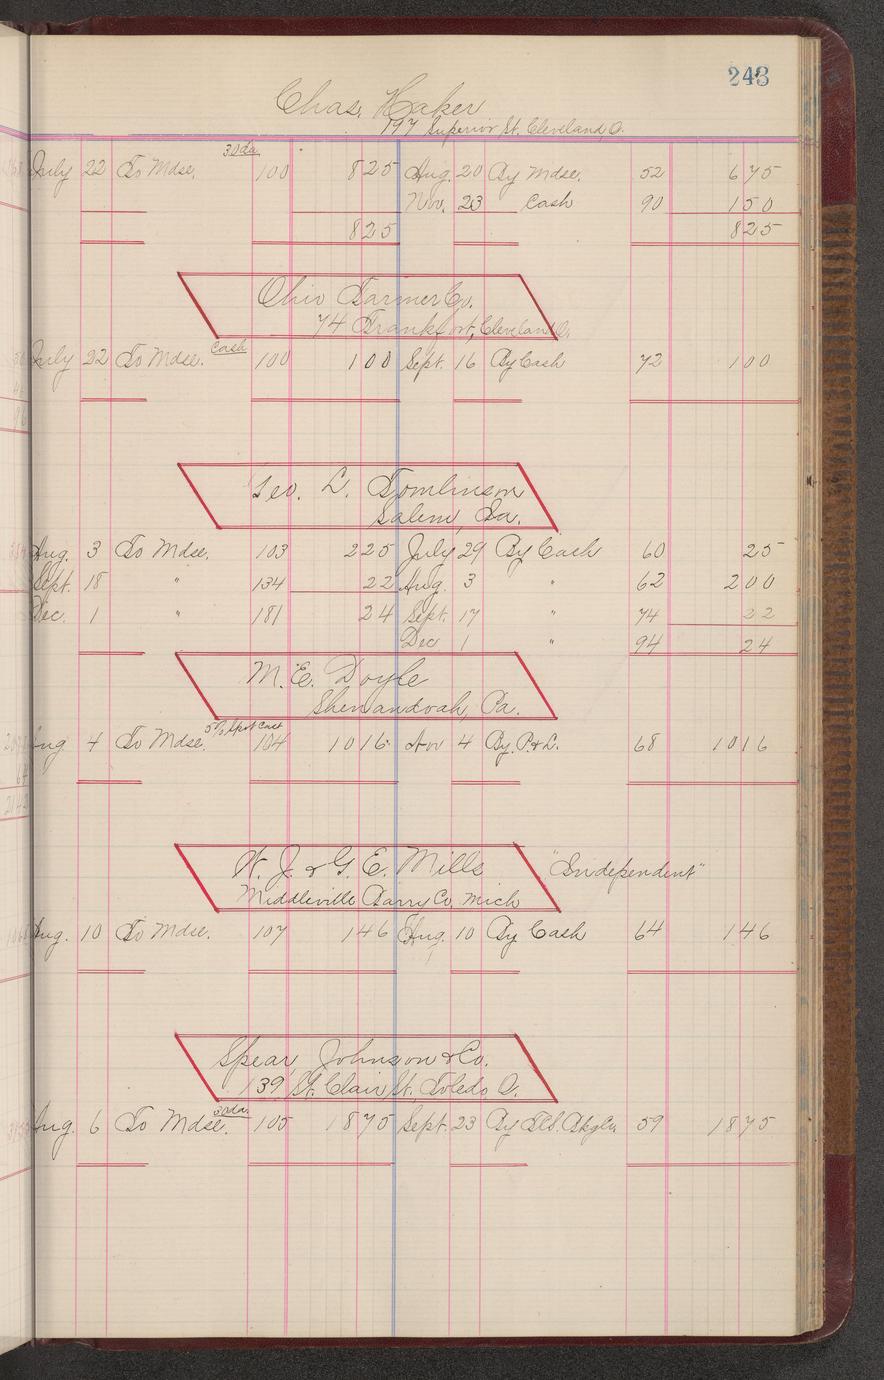 243
Chas. Haker
197 Superior St. Cleveland, O.
July 22 To Mdse. 30 da. 100 825 Aug. 20 By Mdse. 52 675
Nov. 23 Cash 90 150
825 825
Ohio Farmer Co.
74 Frankfort, Cleveland O.
July 22 To Mdse. Cash 100 100 Sept. 16 By Cash 72 100
Geo. L. Tomlinson
Salem, Ia.
Aug. 3 To Mdse. 103 225 July 29 By Cash 60 25
Sept. 18 " 134 22 Aug. 3 " 62 200
Dec. 1 " 181 24 Sept. 17 " 74 22
Dec 1 " 94 24
M. E. Doyle
Shenandoah, Pa.
Aug 4 To Mdse. 5% Spot Cash 104 1016 Nov 4 By P. & L. 68 1016
W. J. & G. E. Mills "Independent"
Middleville Barry Co, Mich
Aug. 10 To Mdse. 107 146 Aug. 10 By Cash 64 146
Spear, Johnson & Co.
139 St. Clair St. Toledo O.
Aug. 6 To Mdse. 30 da. 105 1875 Sept. 23 By 59 1875